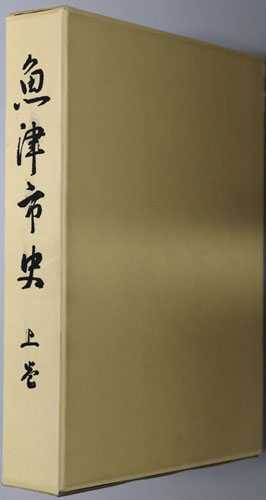 魚津市史
上巻